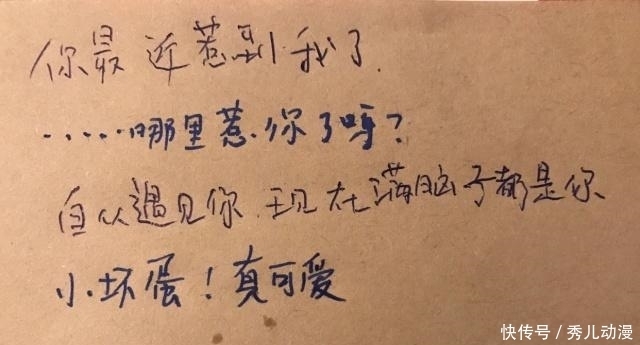 你最近惹到我了.
......哪里惹你了呀?
自从遇见你 现在满脑子都是你
小坏蛋!真可爱
快传号/秀儿动漫